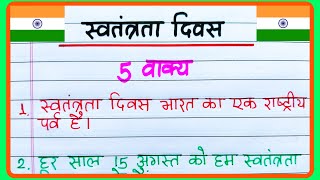 स्वतंत्रता दिवस
5 वाक्य
1. स्वतंत्रता दिवस भारत का एक राष्ट्रीय
पर्व है।
2. हर साल 15 अगस्त को हम स्वतंत्रता